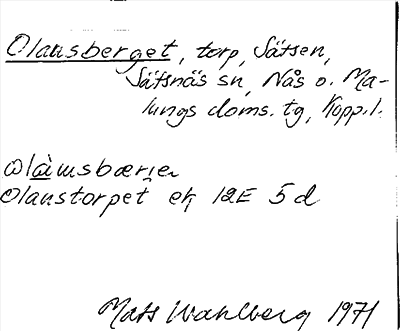 Olansberget, torp, Sätsen,
Sätsnäs sn, Nås o. Ma-
lungs doms. tg, Kopp.l.
Olanstorpet ek 12E 5d
Mats Wahlberg 1971